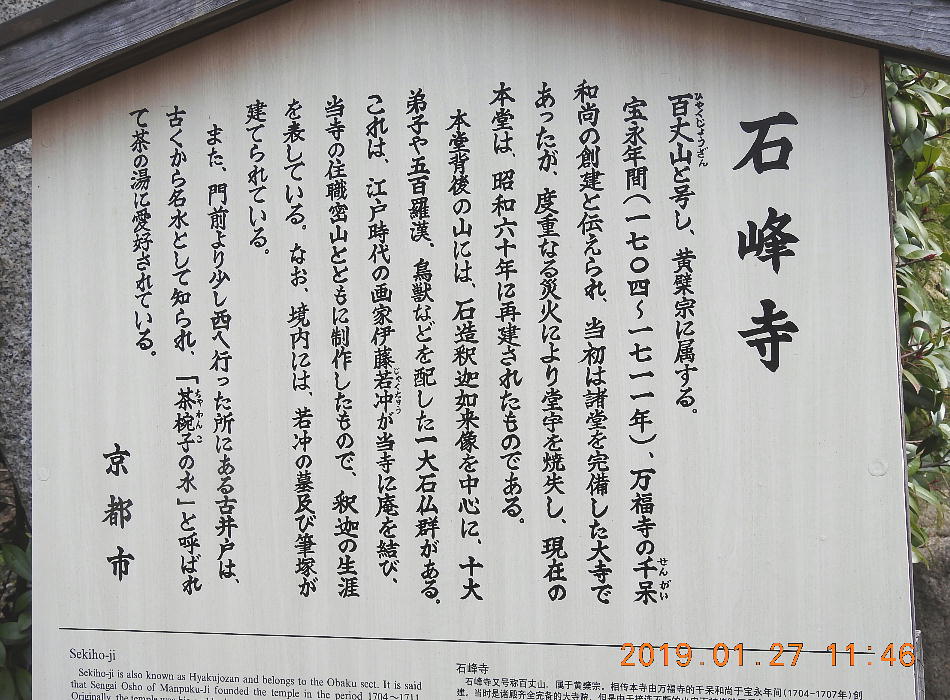 石峰寺
百丈山と号し、黄檗宗に属する。
ひゃくじょうざん
宝永年間（一七〇四～一七一一年）、万福寺の千呆
せんがい
和尚の創建と伝えられ、当初は諸堂を完備した大寺で
あったが、度重なる災火により堂宇を焼失し、現在の
本堂は、昭和六十年に再建されたものである。
本堂背後の山には、石造釈迦如来像を中心に、十大
弟子や五百羅漢、鳥獣などを配した一大石仏群がある。
これは、江戸時代の画家伊藤若冲が当寺に庵を結び、
じゃくちゅう
当寺の住職密山とともに制作したもので、釈迦の生涯
を表している。なお、境内には、若冲の墓及び筆塚が
建てられている。
また、門前より少し西へ行った所にある古井戸は、
古くから名水として知られ、「茶椀子の水」と呼ばれ
ちゃわんこ
て茶の湯に愛好されている。
京都市
Sekiho-ji
Sekiho-ji is also known as Hyakujozan and belongs to the Obaku sect. It is said
that Sengai Osho of Manpuku-Ji founded the temple in the period 1704～1711.
Originally, the temple was
石峰寺
石峰寺又号称百丈山，属于黄檗宗。相传本寺由万福寺的千呆和尚于宝永年间（1704-1707年）创
建。当时是诸殿齐全完备的大寺院，但是由于
2019.01.27 11:46